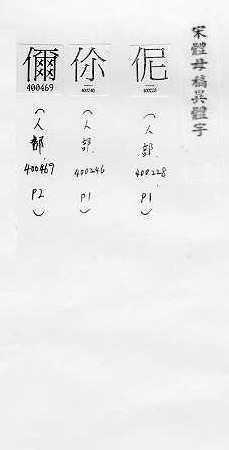 宋體母稿異體字
伲
400228
(人部.
400228
P1)
伱
400246
(人部.
400246
P1)
儞
400469
(人部.
400469
P2)